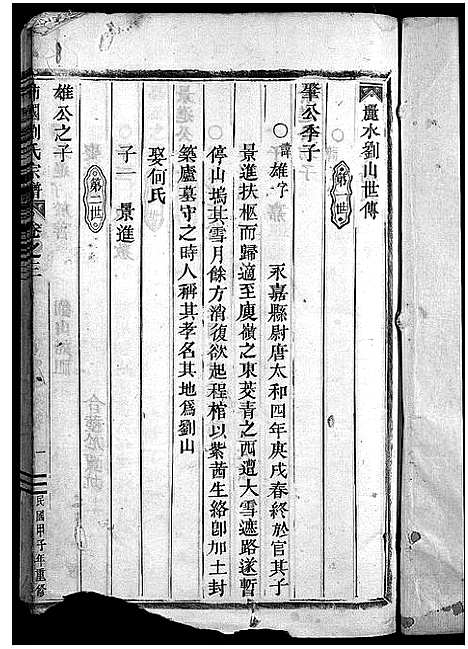 麗水劉山世傳
第一世
肇公季子
○諱雄字　永嘉縣尉唐太和四年庚戌春終於官其子
景進扶柩而歸適至庾嶺之東菱青之西遭大雪遮路遂暫
停山塢其雪月餘方消復欲起程棺以紫茜生絡卽加土封
築廬墓守之時人稱其孝名其地爲劉山
娶何氏
子一　景進
第二世
雄公之子
南園劉氏宗譜　卷之三　一　民國甲子年重修